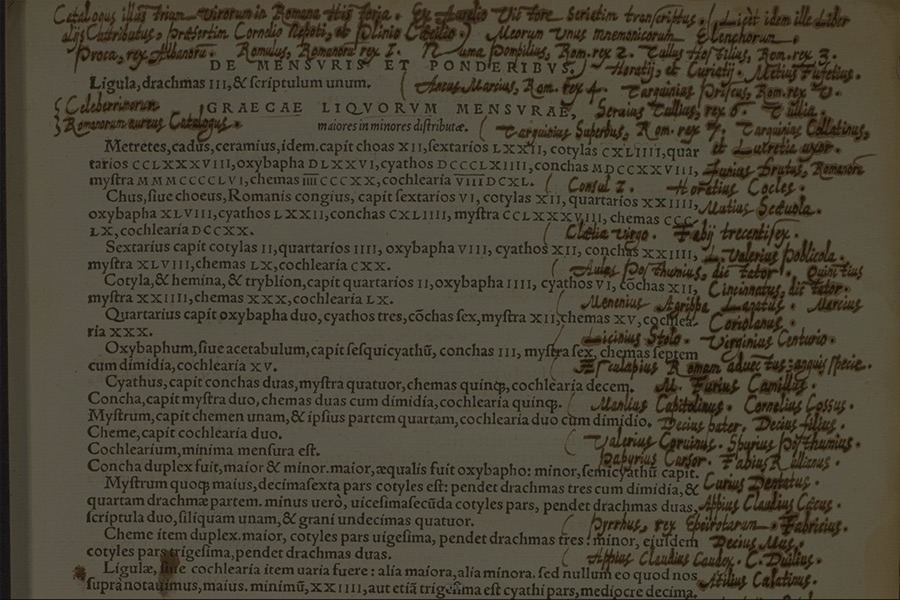 Catalogus illustrium virorum in Romana Historia. Ex Aurelio Victore Scrietim transcriptus. (Licèt idem ille Liber
alijs attributus, praesertim Cornelio Nepoti, et Plinio Caecilio.) Meorum unus mnemonicorum Elenchorum.
Proca, rex Albanorum. Romulus, Romanoru rex 1. Numa Pompilius, Rom. rex 2. Tullus Hostilius, Rom. rex 3.
DE MENSVRIS ET PONDERIBVS. Horatij, et Curiatij. Metius Fufetius.
Ligula, drachmas III, & scriptulum unum. Ancus Marcius, Rom. rex 4. Tarquinius Priscus, Rom. rex 5.
Celeberrimorum
Romanorum aureus Catalogus.
GRAECAE LIQVORVM MENSVRAE, Seruius Tullius, rex 6. Tullia.
maiores in minores distributæ. Tarquinius Superbus, Rom. rex 7. Tarquinius Collatinus,
et Lucretia uxor.
Metretes, cadus, ceramius, idem. capit choas XII, sextarios LXXII, cotylas CXLIIII, quar
tarios CCLXXXVIII, oxybapha DLXXVI, cyathos DCCCLXIIII, conchas MDCCXXVIII,
mystra MMMCCCCLVI, chemas IIIICCCXX, cochlearia VIIIDCXL.
Junius Brutus, Romanoru
Consul 1. Horatius Cocles.
Chus, siue choeus, Romanis congius, capit sextarios VI, cotylas XII, quartarios XXIIII,
oxybapha XLVIII, cyathos LXXII, conchas CXLIIII, mystra CCLXXXVIII, chemas CCC
LX, cochlearia DCCXX.
Mutius Scæuola.
Clælia virgo. Fabij trecenti sex.
Sextarius capit cotylas II, quartarios IIII, oxybapha VIII, cyathos XII, conchas XXIIII,
mystra XLVIII, chemas LX, cochlearia CXX.
L. Valerius Poblicola.
Aulus Posthumius, dictator. Quintius
Cotyla, & hemina, & tryblion, capit quartarios II, oxybapha IIII, cyathos VI, cōchas XII,
mystra XXIIII, chemas XXX, cochlearia LX.
Cincinnatus, dictator.
Menenius Agrippa Lanatus. Marcius
Coriolanus.
Quartarius capit oxybapha duo, cyathos tres, cōchas sex, mystra XII, chemas XV, cochlea-
ria XXX.
Licinius Stolo. Virginius Centurio.
Oxybaphum, siue acetabulum, capit sesquicyathū, conchas III, mystra sex, chemas septem
cum dimidia, cochlearia XV.
Æsculapius Romam aduectus: anguis specie.
Cyathus, capit conchas duas, mystra quatuor, chemas quinq;, cochlearia decem.
M. Furius Camillus.
Concha, capit mystra duo, chemas duas cum dimidia, cochlearia quinq;.
Manlius Capitolinus. Cornelius Cossus.
Mystrum, capit chemen unam, & ipsius partem quartam, cochlearia duo cum dimidio.
Decius pater. Decius filius.
Cheme, capit cochlearia duo.
Valerius Coruinus. Spurius Posthumius.
Cochlearium, minima mensura est.
Papyrius Cursor. Fabius Rullianus.
Concha duplex fuit, maior & minor. maior, æqualis fuit oxybapho: minor, semicyathū capit.
Mystrum quoq; maius, decimasexta pars cotyles est: pendet drachmas tres cum dimidia, &
quartam drachmæ partem. minus uerò, uicesimasecūda cotyles pars, pendet drachmas duas,
scriptula duo, siliquam unam, & grani undecimas quatuor.
Curius Dentatus.
Appius Claudius Cæcus.
Pyrrhus, rex Epeirotarum. Fabricius.
Cheme item duplex. maior, cotyles pars uigesima, pendet drachmas tres: minor, eiusdem
cotyles pars trigesima, pendet drachmas duas.
Decius Mus.
Appius Claudius Caudex. C. Duilius.
Ligulæ, siue cochlearia item uaria fuere: alia maiora, alia minora. sed nullum eo quod nos
supra notauimus, maius. minimū, XXIIII, aut etiā trigesima est cyathi pars, mediocre decima.
Atilius Calatinus.